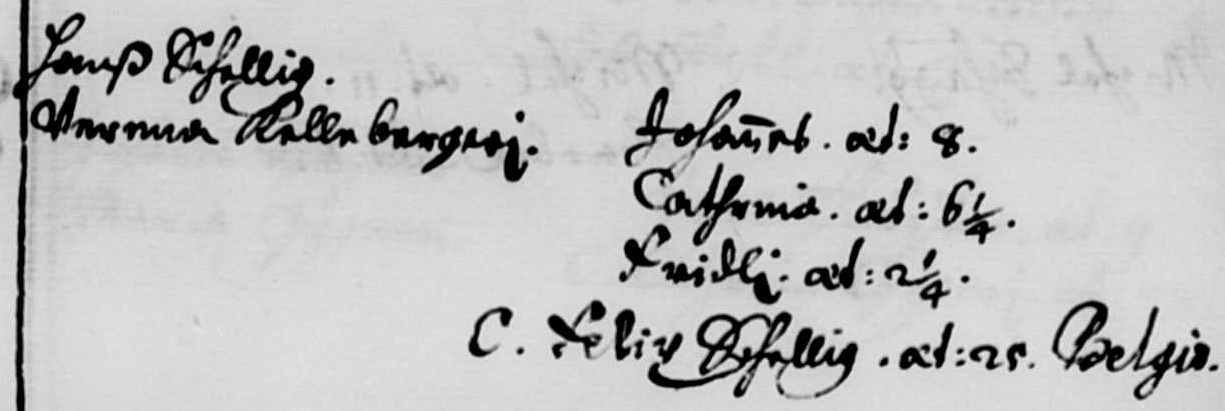 Hanß Schellig.
Verena Kellebergeri. Johañes. æt: 8.
Cathrina. æt: 6 1/4.
Fridli. æt: 2 1/4.
C. Felix Schellig. æt: 25. Belgio.